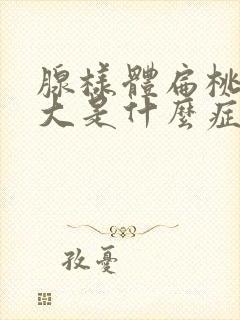 腺樣體扁桃
大是什麼症
孜憂